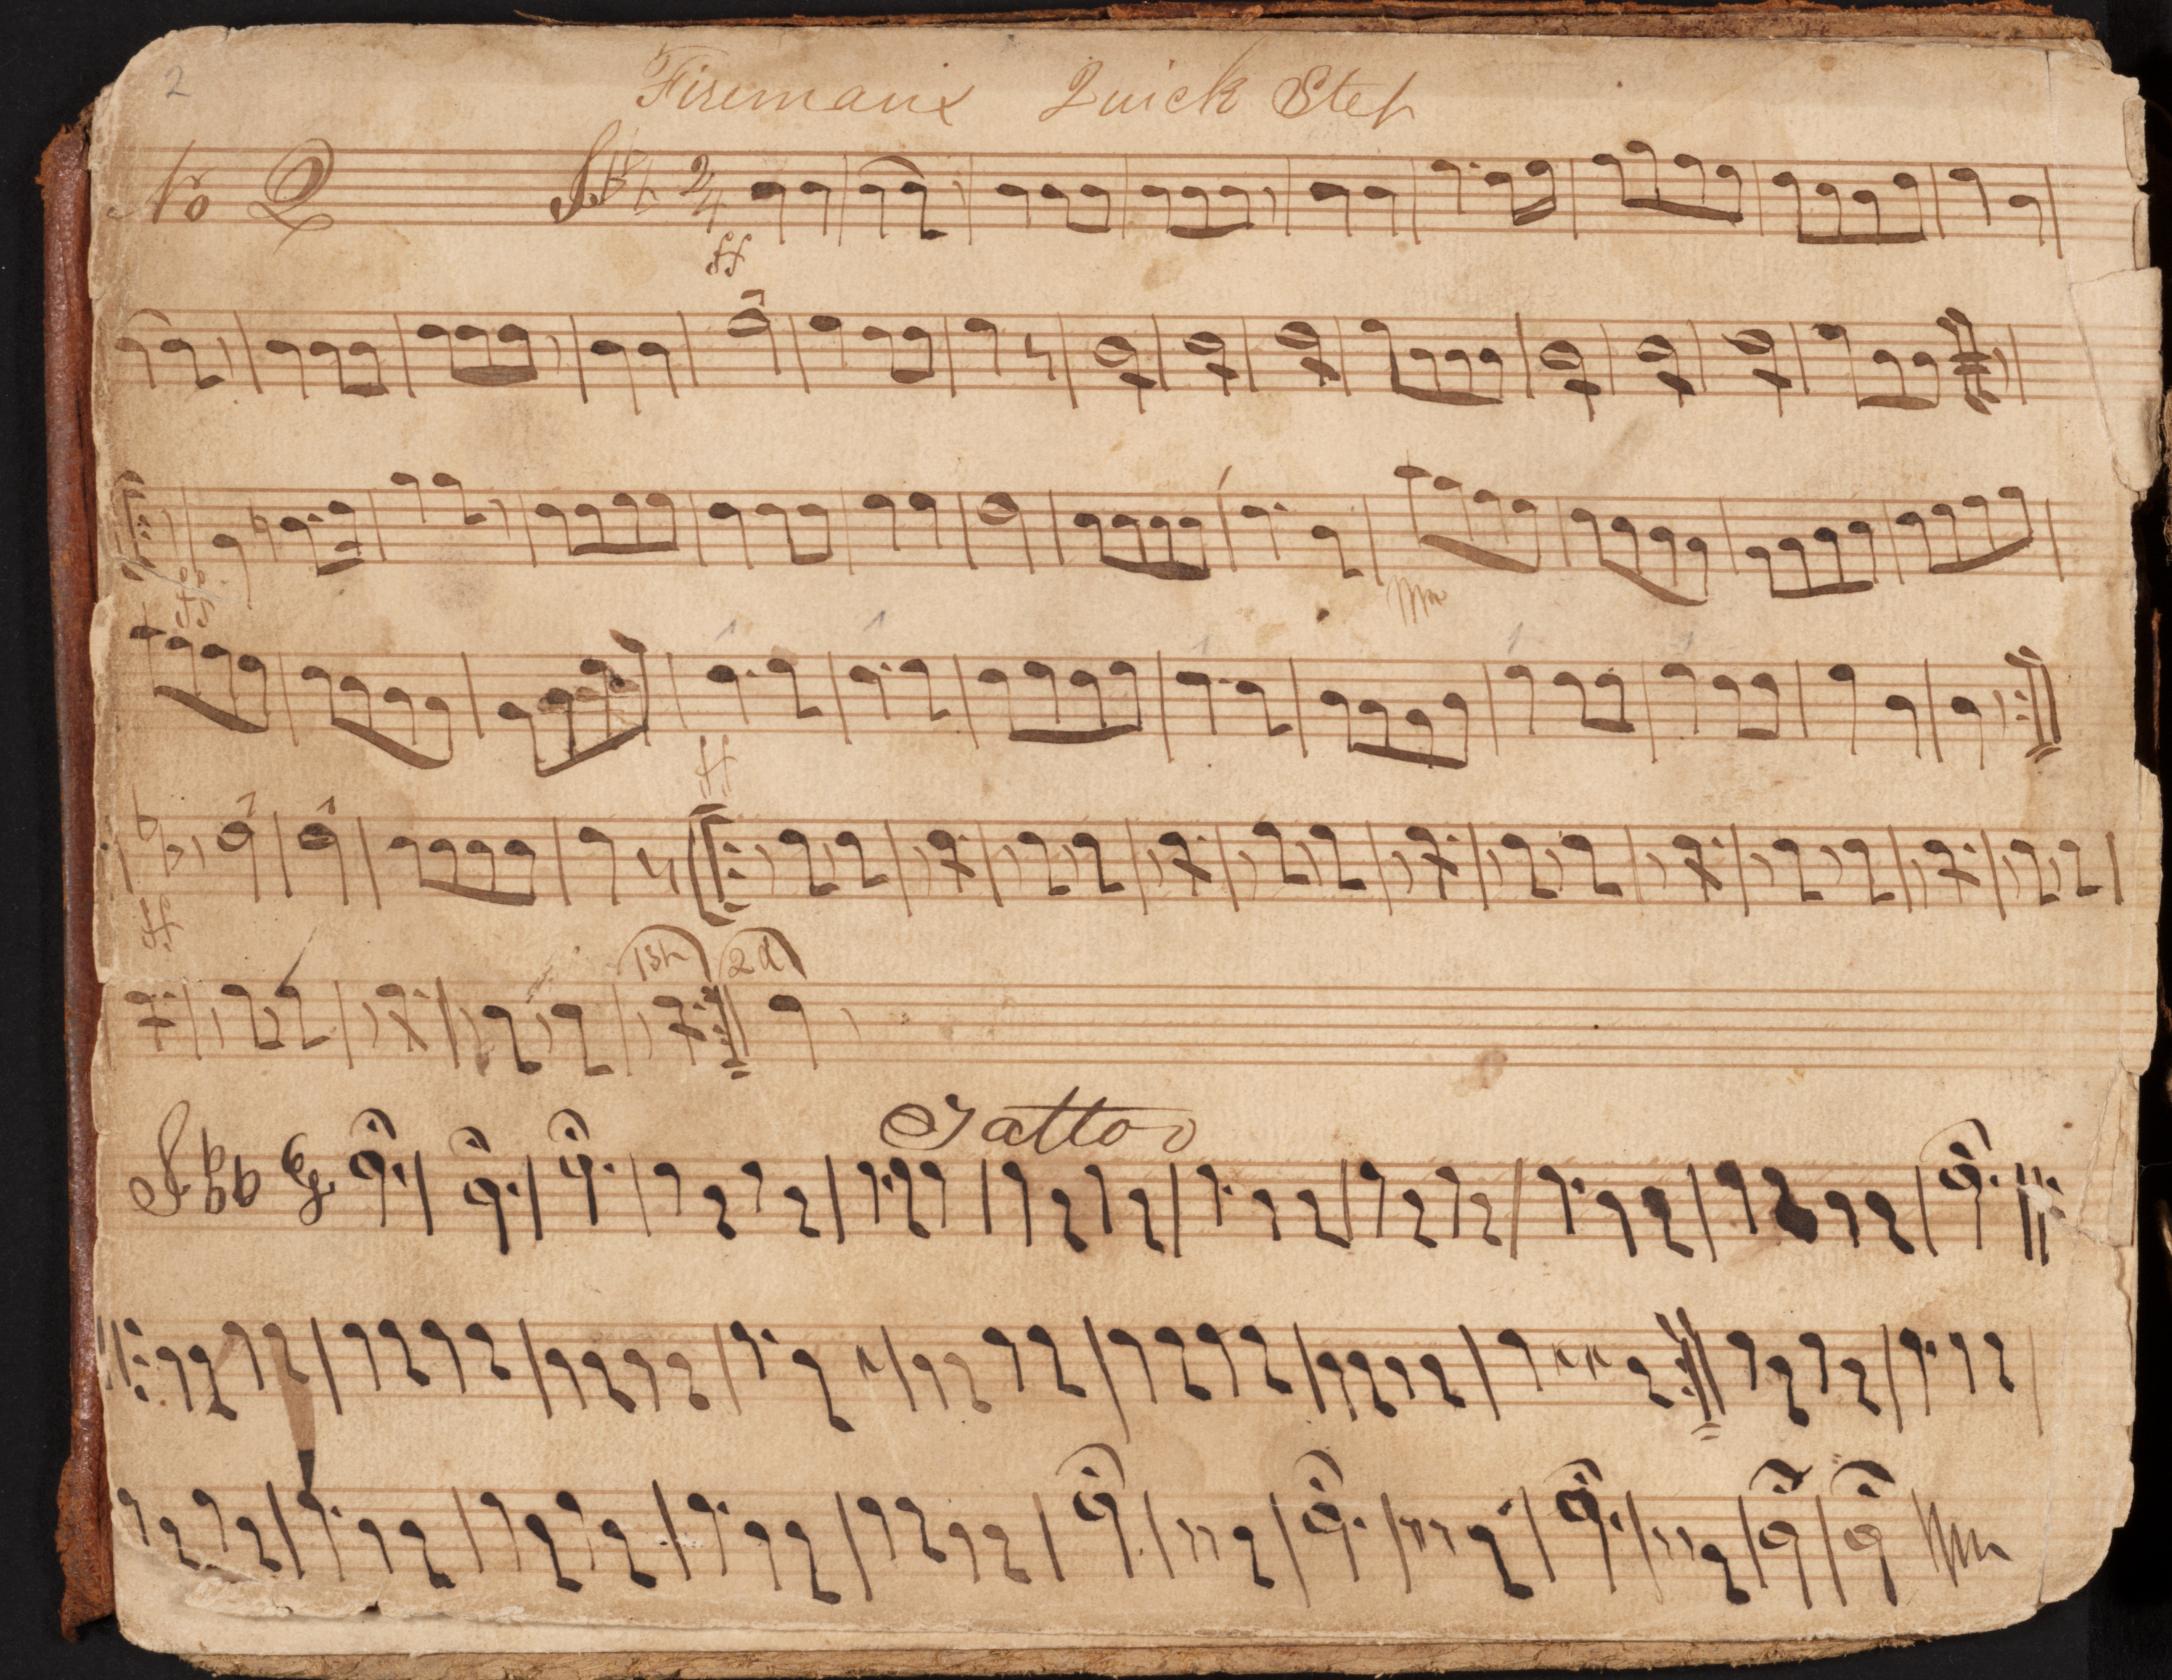 2
Firemans Quick Step
No 2
2/4
ff
ff
1st 2d
Tattoo